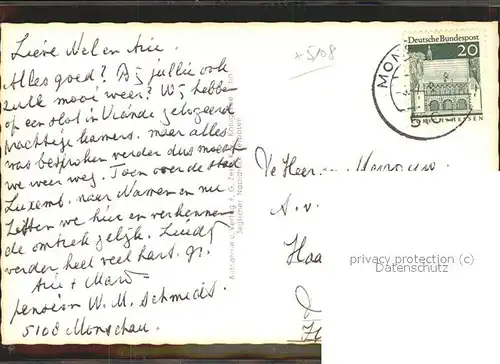 Lieve Nel en Arie.
Alles goed? Bij jullie ook
zulk mooi weer? Wij hebben
op een slot in Viánde gelogeerd
prachtige kamers. maar alles
was besproken verder dus moesten
we weer weg. Toen over de stad
Luxemb. naar Namen en nu
zitten we hier en verkennen
de omtrek gelijk.
verder heel veel hart. gr.
Arie + Marie
pension W. M. Schmidt.
5108 Monschau.
+5108
Deutsche Bundespost
20
LORSCH/HESSEN
MONS
De Heer en Mevrouw
A. v.
Haa
privacy protection (c)
Datenschutz